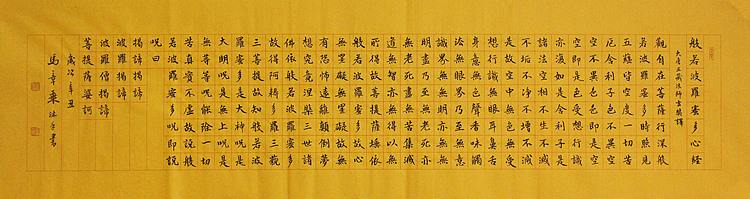 般若波羅蜜多心経
大唐三藏法師玄奘譯
觀自在菩薩行深般
若波羅蜜多時照見
五蘊皆空度一切苦
厄舍利子色不異空
空不異色色即是空
空即是色受想行識
亦復如是舍利子是
諸法空相不生不滅
不垢不淨不增不減
是故空中無色無受
想行識無眼耳鼻舌
身意無色聲香味觸
法無眼界乃至無意
識界無無明亦無無
明盡乃至無老死亦
無老死盡無苦集滅
道無智亦無得以無
所得故菩提薩埵依
般若波羅蜜多故心
無罣礙無罣礙故無
有恐怖遠離顛倒夢
想究竟涅槃三世諸
佛依般若波羅蜜多
故得阿耨多羅三藐
三菩提故知般若波
羅蜜多是大神呪是
大明呪是無上呪是
無等等呪能除一切
苦真實不虛故說般
若波羅蜜多呪即說
呪曰
揭諦揭諦
波羅揭諦
波羅僧揭諦
菩提薩婆訶
歲次辛丑
馬章乘沐手書